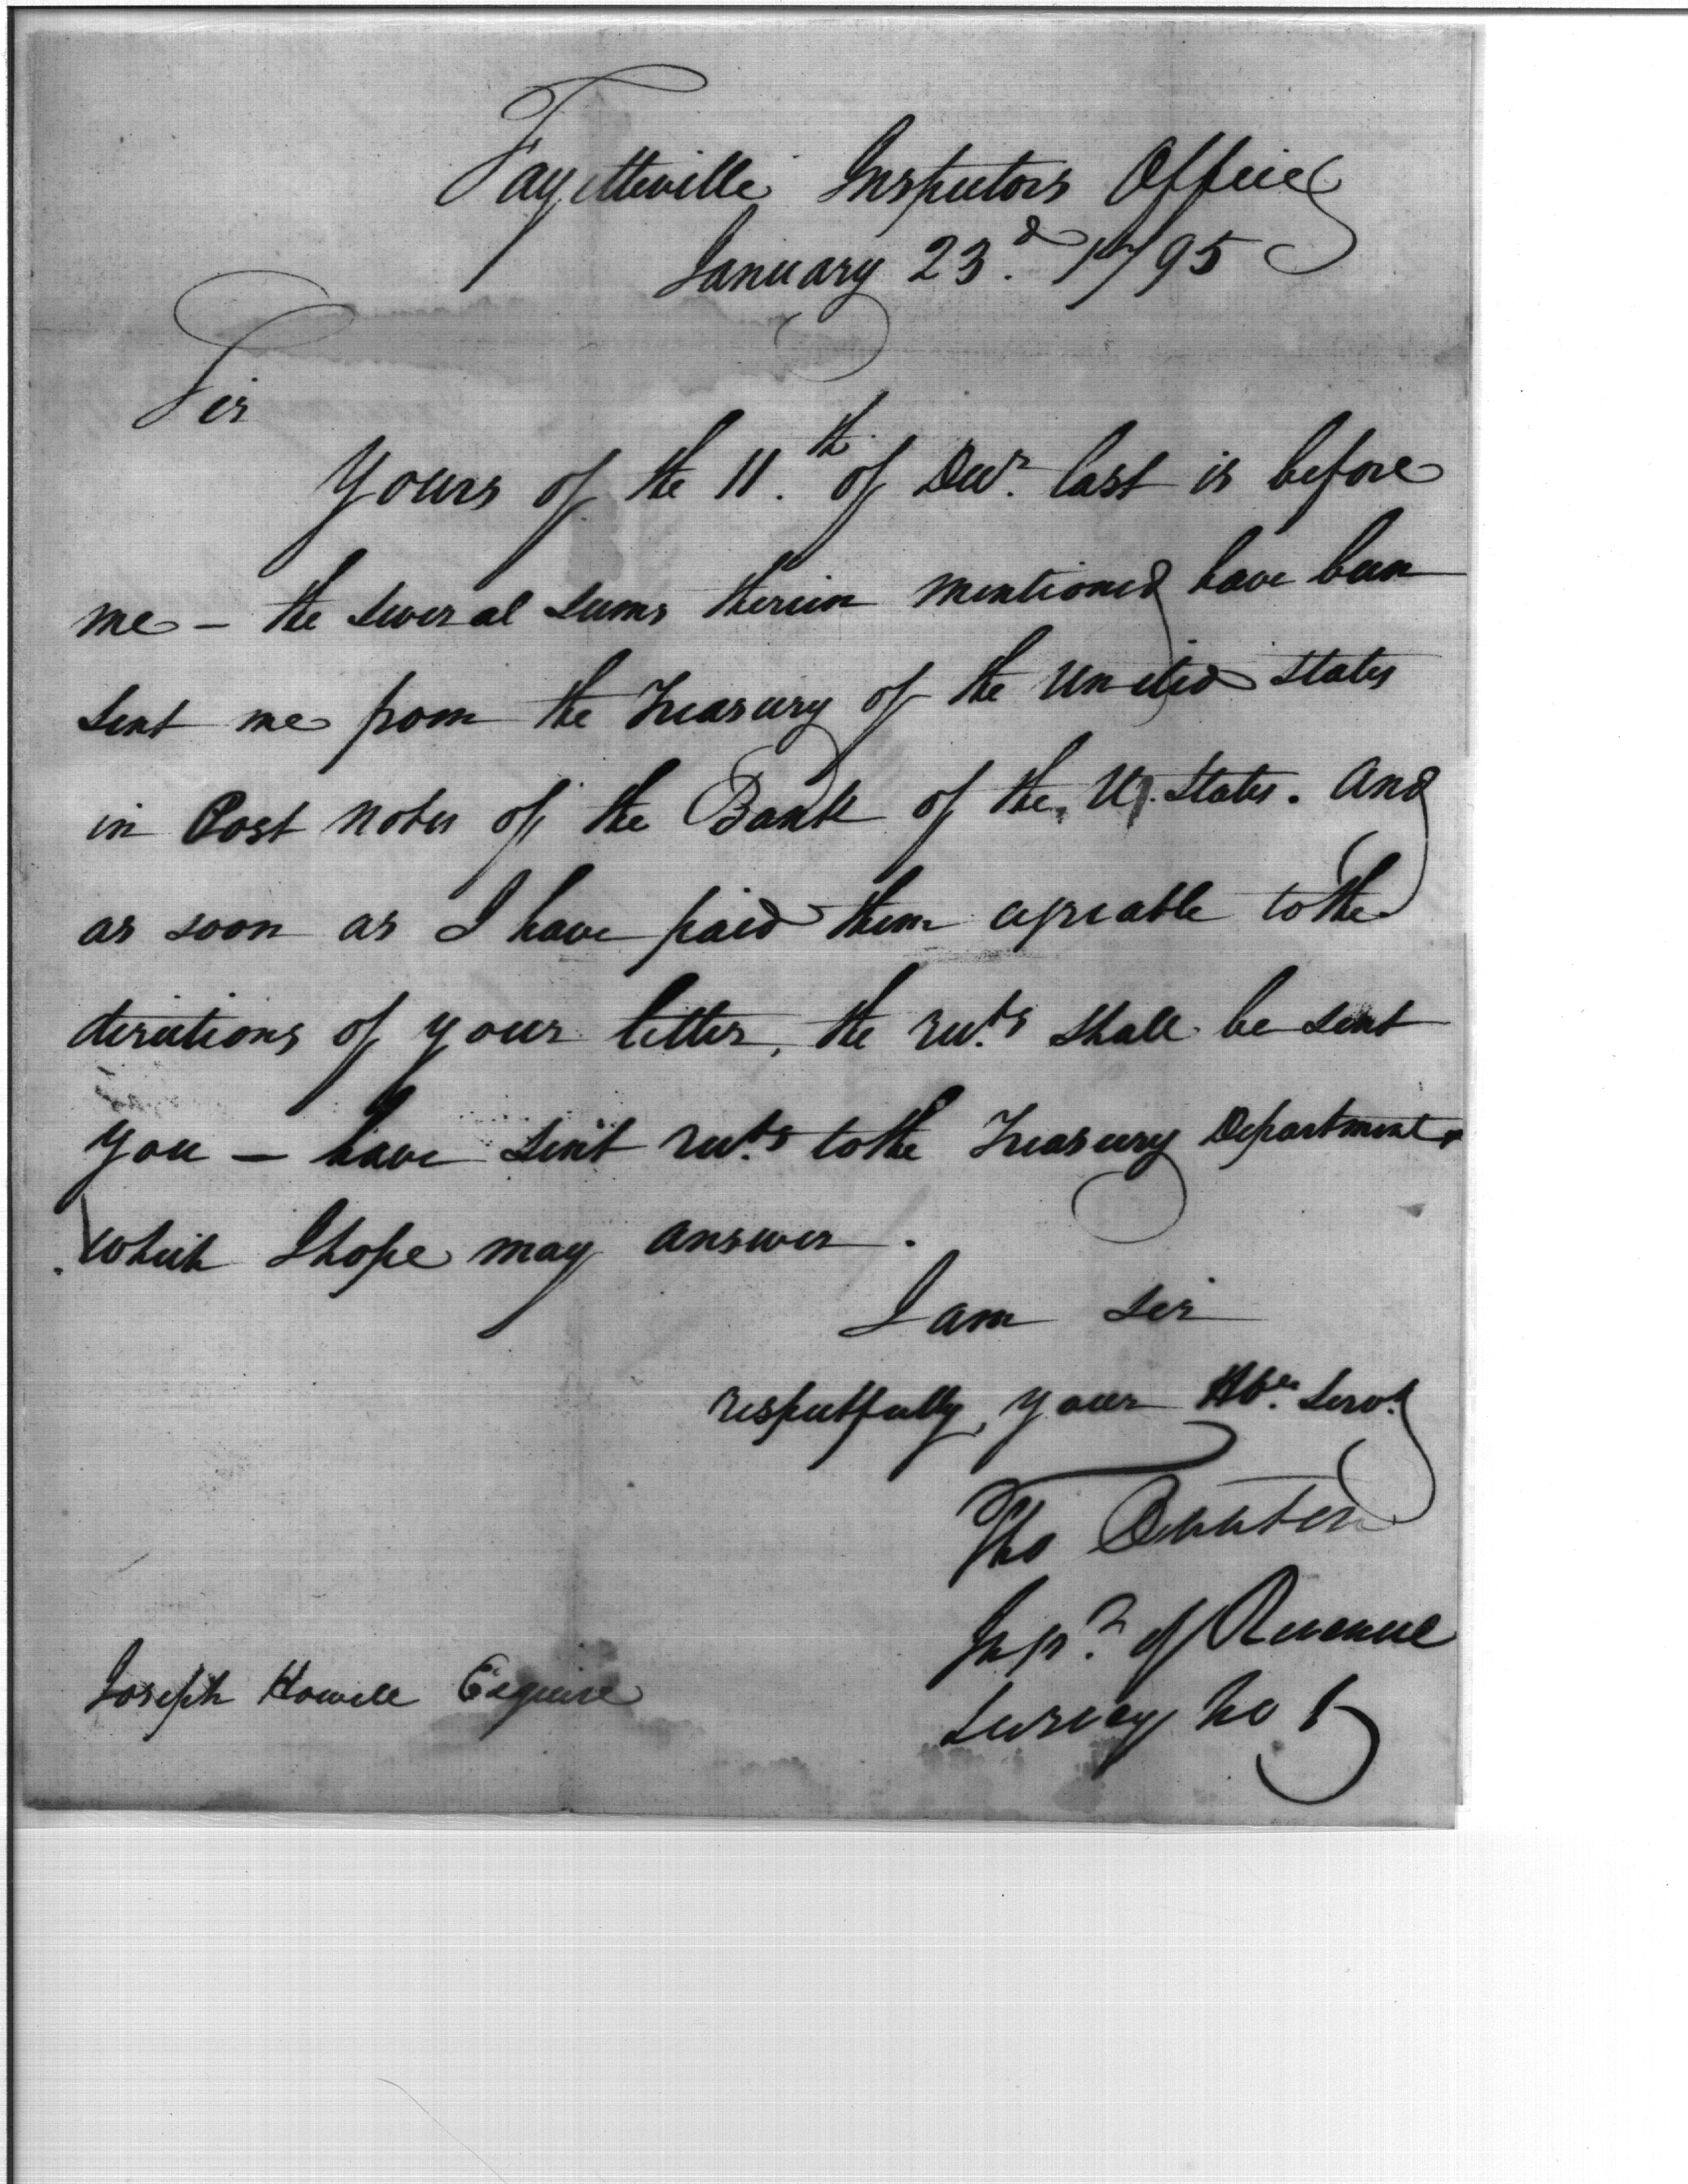 Fayetteville Inspectors Office
January 23.d 1795
Sir
Yours of the 11.th of Decr. last is before
me - the several sums therein mentioned have been
sent me from the Treasury of the United States
in Post notes of the Bank of the U. States. And
as soon as I have paid them agreable to the
directions of your letter, the rects. shall be sent
you - have sent rects. to the Treasury Department
which I hope may answer.
I am Sir
respectfully, your Hble. Servt.
Tho
Inspr. of Revenue
Survey No
Joseph Howell Esquire